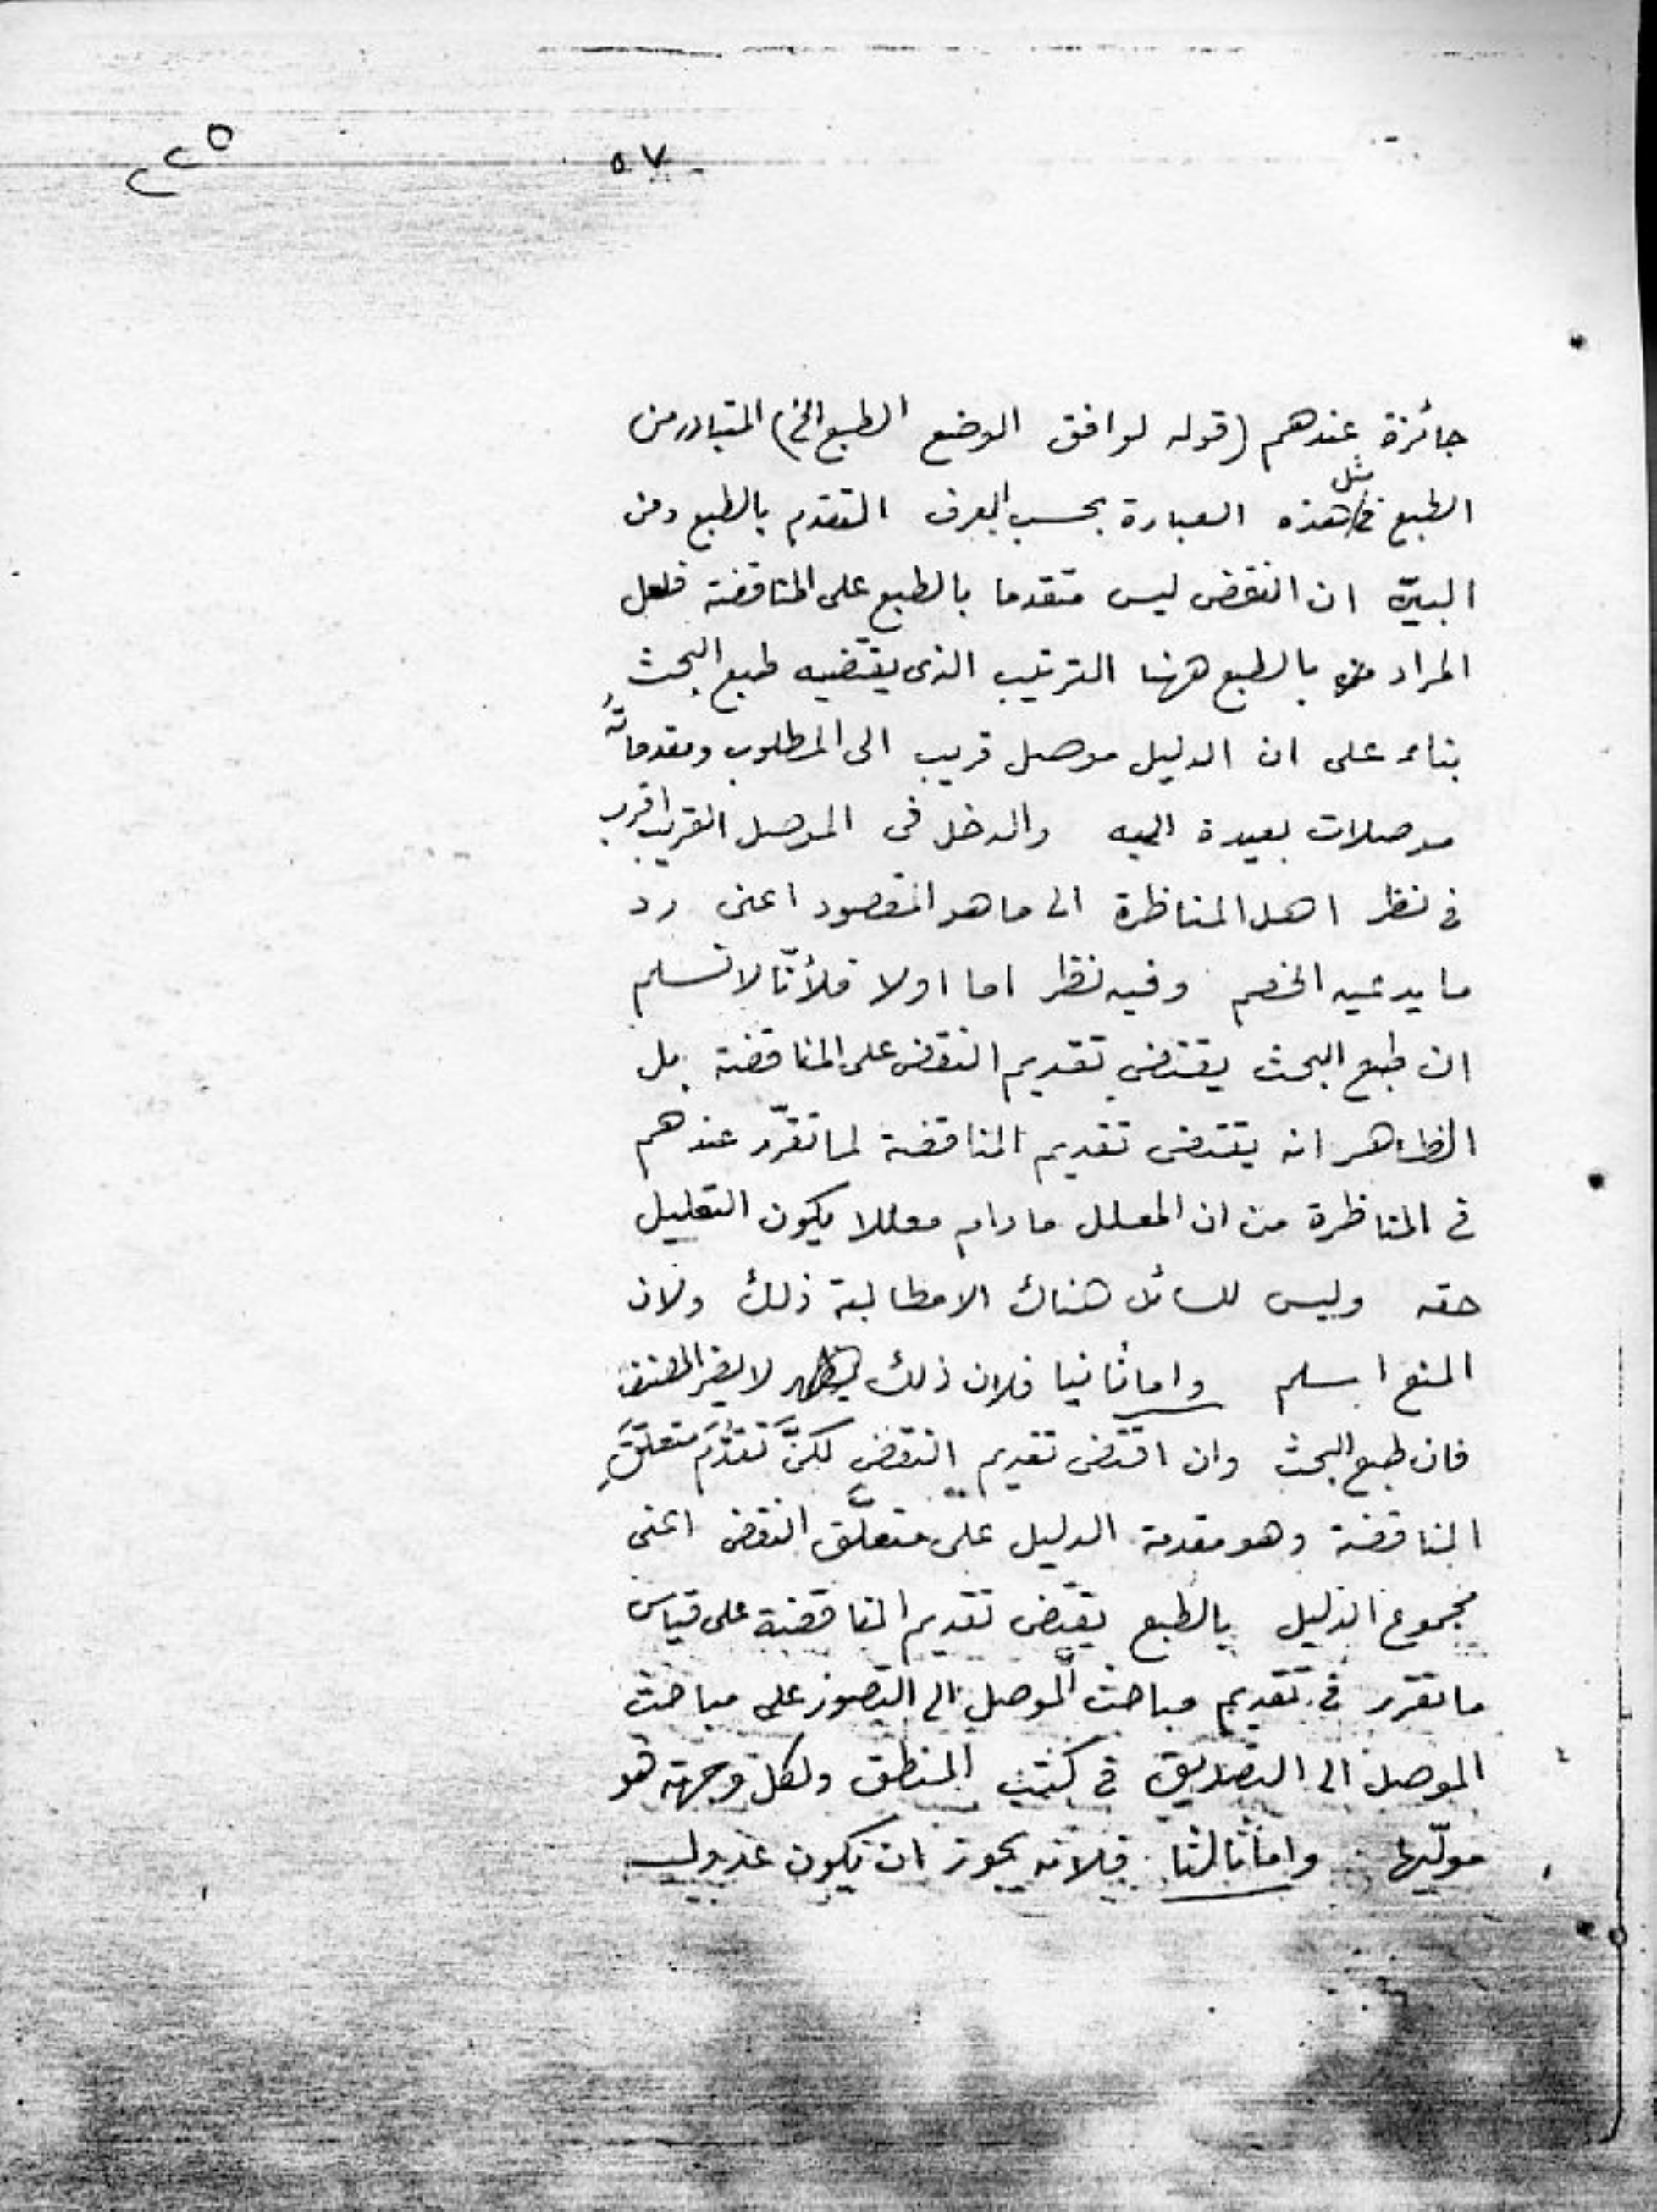 ٥٧
٢٢٥
جائزة عندهم (قوله لوافق الوضع الطبع الخ) المتبادر من
الطبع فى مثل هذه العبارة بحسب العرف المتقدم بالطبع ومن
البيّن ان النقض ليس متقدما بالطبع على المناقضة فلعل
المراد بالطبع ههنا الترتيب الذى يقتضيه طبع البحث
بناء على ان الدليل موصل قريب الى المطلوب ومقدماتُه
موصلات بعيدة اليه والدخل فى الموصل القريب اقرب
فى نظر اهل المناظرة الى ما هو المقصود اعنى رد
ما يدعيه الخصم وفيه نظر اما اولا فلأنّا لا نسلم
ان طبع البحث يقتضى تقديم النقض على المناقضة بل
الظاهر انه يقتضى تقديم المناقضة لما تقرّر عندهم
فى المناظرة من ان المعلل ما دام معللا يكون التعليل
حقه وليس للسائل هناك الا مطالبة ذلك ولان
المنع اسلم واما ثانيا فلان ذلك لا يضر المصنف
فان طبع البحث وان اقتضى تقديم النقض لكنّ تقدّمَ متعلَّقِ
المناقضة وهو مقدمة الدليل على متعلَّق النقض اعنى
مجموع الدليل بالطبع يقتضى تقديم المناقضة على قياس
ما تقرر فى تقديم مباحث الموصل الى التصور على مباحث
الموصل الى التصديق فى كتب المنطق ولكل وجهة هو
مولّيها واما ثالثا فلانه يجوز ان يكون عدول